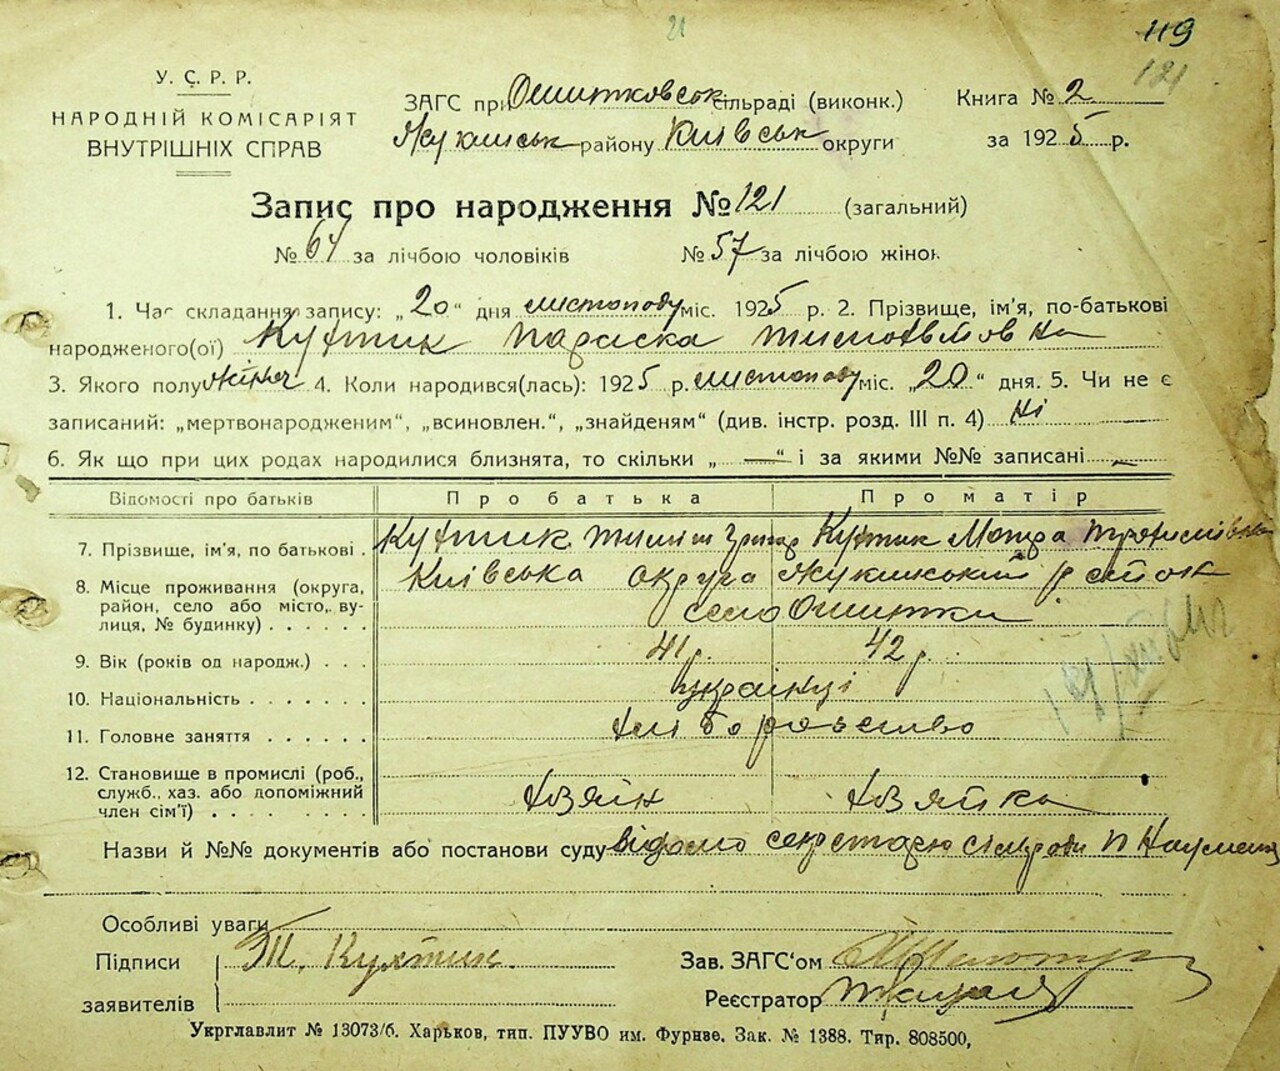 21
119
121
У. С. Р. Р.
НАРОДНІЙ КОМІСАРІЯТ
ВНУТРІШНІХ СПРАВ
ЗАГС при Ошитковськ сільраді (виконк.)
Жукинськ району Київськ округи
Книга № 2
за 1925 р.
Запис про народження № 121 (загальний)
№ 64 за лічбою чоловіків № 57 за лічбою жінок
1. Час складання запису: „20" дня листопаду міс. 1925 р. 2. Прізвище, ім'я, по-батькові
народженого(ої) Кухтик Параска Тимофіївна
3. Якого полу жіноч 4. Коли народився(лась): 1925 р. листопаду міс. „20" дня. 5. Чи не є
записаний: „мертвонародженим", „всиновлен.", „знайденям" (див. інстр. розд. III п. 4) Ні
6. Як що при цих родах народилися близнята, то скільки „ — " і за якими №№ записані —
Відомості про батьків Про батька Про матір
7. Прізвище, ім'я, по батькові . Кухтик Григор Кухтик Мотра
8. Місце проживання (округа, район, село або місто, вулиця, № будинку) . . . . . . Київська округа Жукинський район
село Ошитки
9. Вік (років од народж.) . . . 41 р. 42 р.
10. Національність . . . . . . . українці
11. Головне заняття . . . . . . хліборобство
12. Становище в промислі (роб., служб., хаз. або допоміжний член сім'ї) . . . . . . . . хазяїн хазяйка
Назви й №№ документів або постанови суду відомо секретарю сільради
Особливі уваги
Підписи Т. Кухтик.
заявителів
Зав. ЗАГС'ом
Реєстратор
Укрглавліт № 13073/б. Харьков, тип. ПУУВО им. Фрунзе. Зак. № 1388. Тир. 808500,